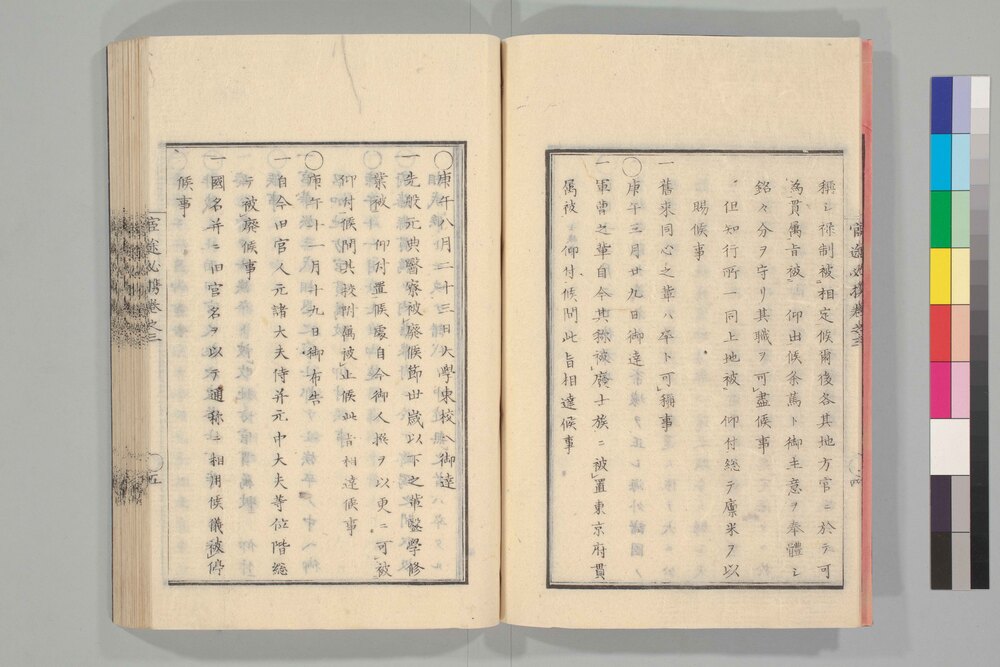 稱シ祿制被相定候爾後各其地方官ニ於テ可
為貫属旨被 仰出候条篤ト御主意ヲ奉體シ
銘々分ヲ守リ其職ヲ可盡候事
但知行所一同上地被 仰付総テ廩米ヲ以
賜候事
一舊来同心之輩ハ卒ト可稱事
○庚午三月廿九日御達
一軍曹之輩自今其称被廢士族ニ被置東京府貫
属被 仰付候間此旨相達候事
官途必携巻之三
○四
○庚午八月二十三日大學東校ヘ御達
一先般元典醫寮被廢候節卅歳以下之輩醫學修
業被 仰付置候處自今御人撰ヲ以更ニ可被
仰付候間共校附属被止候此旨相達候事
○庚午十一月十九日御布告
一自今旧官人元諸大夫侍并元中大夫等位階総
テ被廢候事
一國名并ニ旧官名ヲ以テ通称ニ相用候儀被停
候事
官途必携巻之三
○五